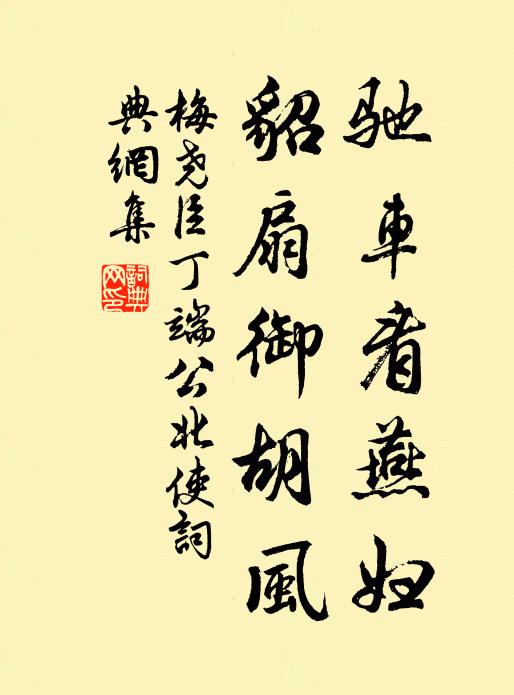 馳車看燕妇
貂扇御胡風
梅尧臣丁端公北使詞
典網集
詞典网印